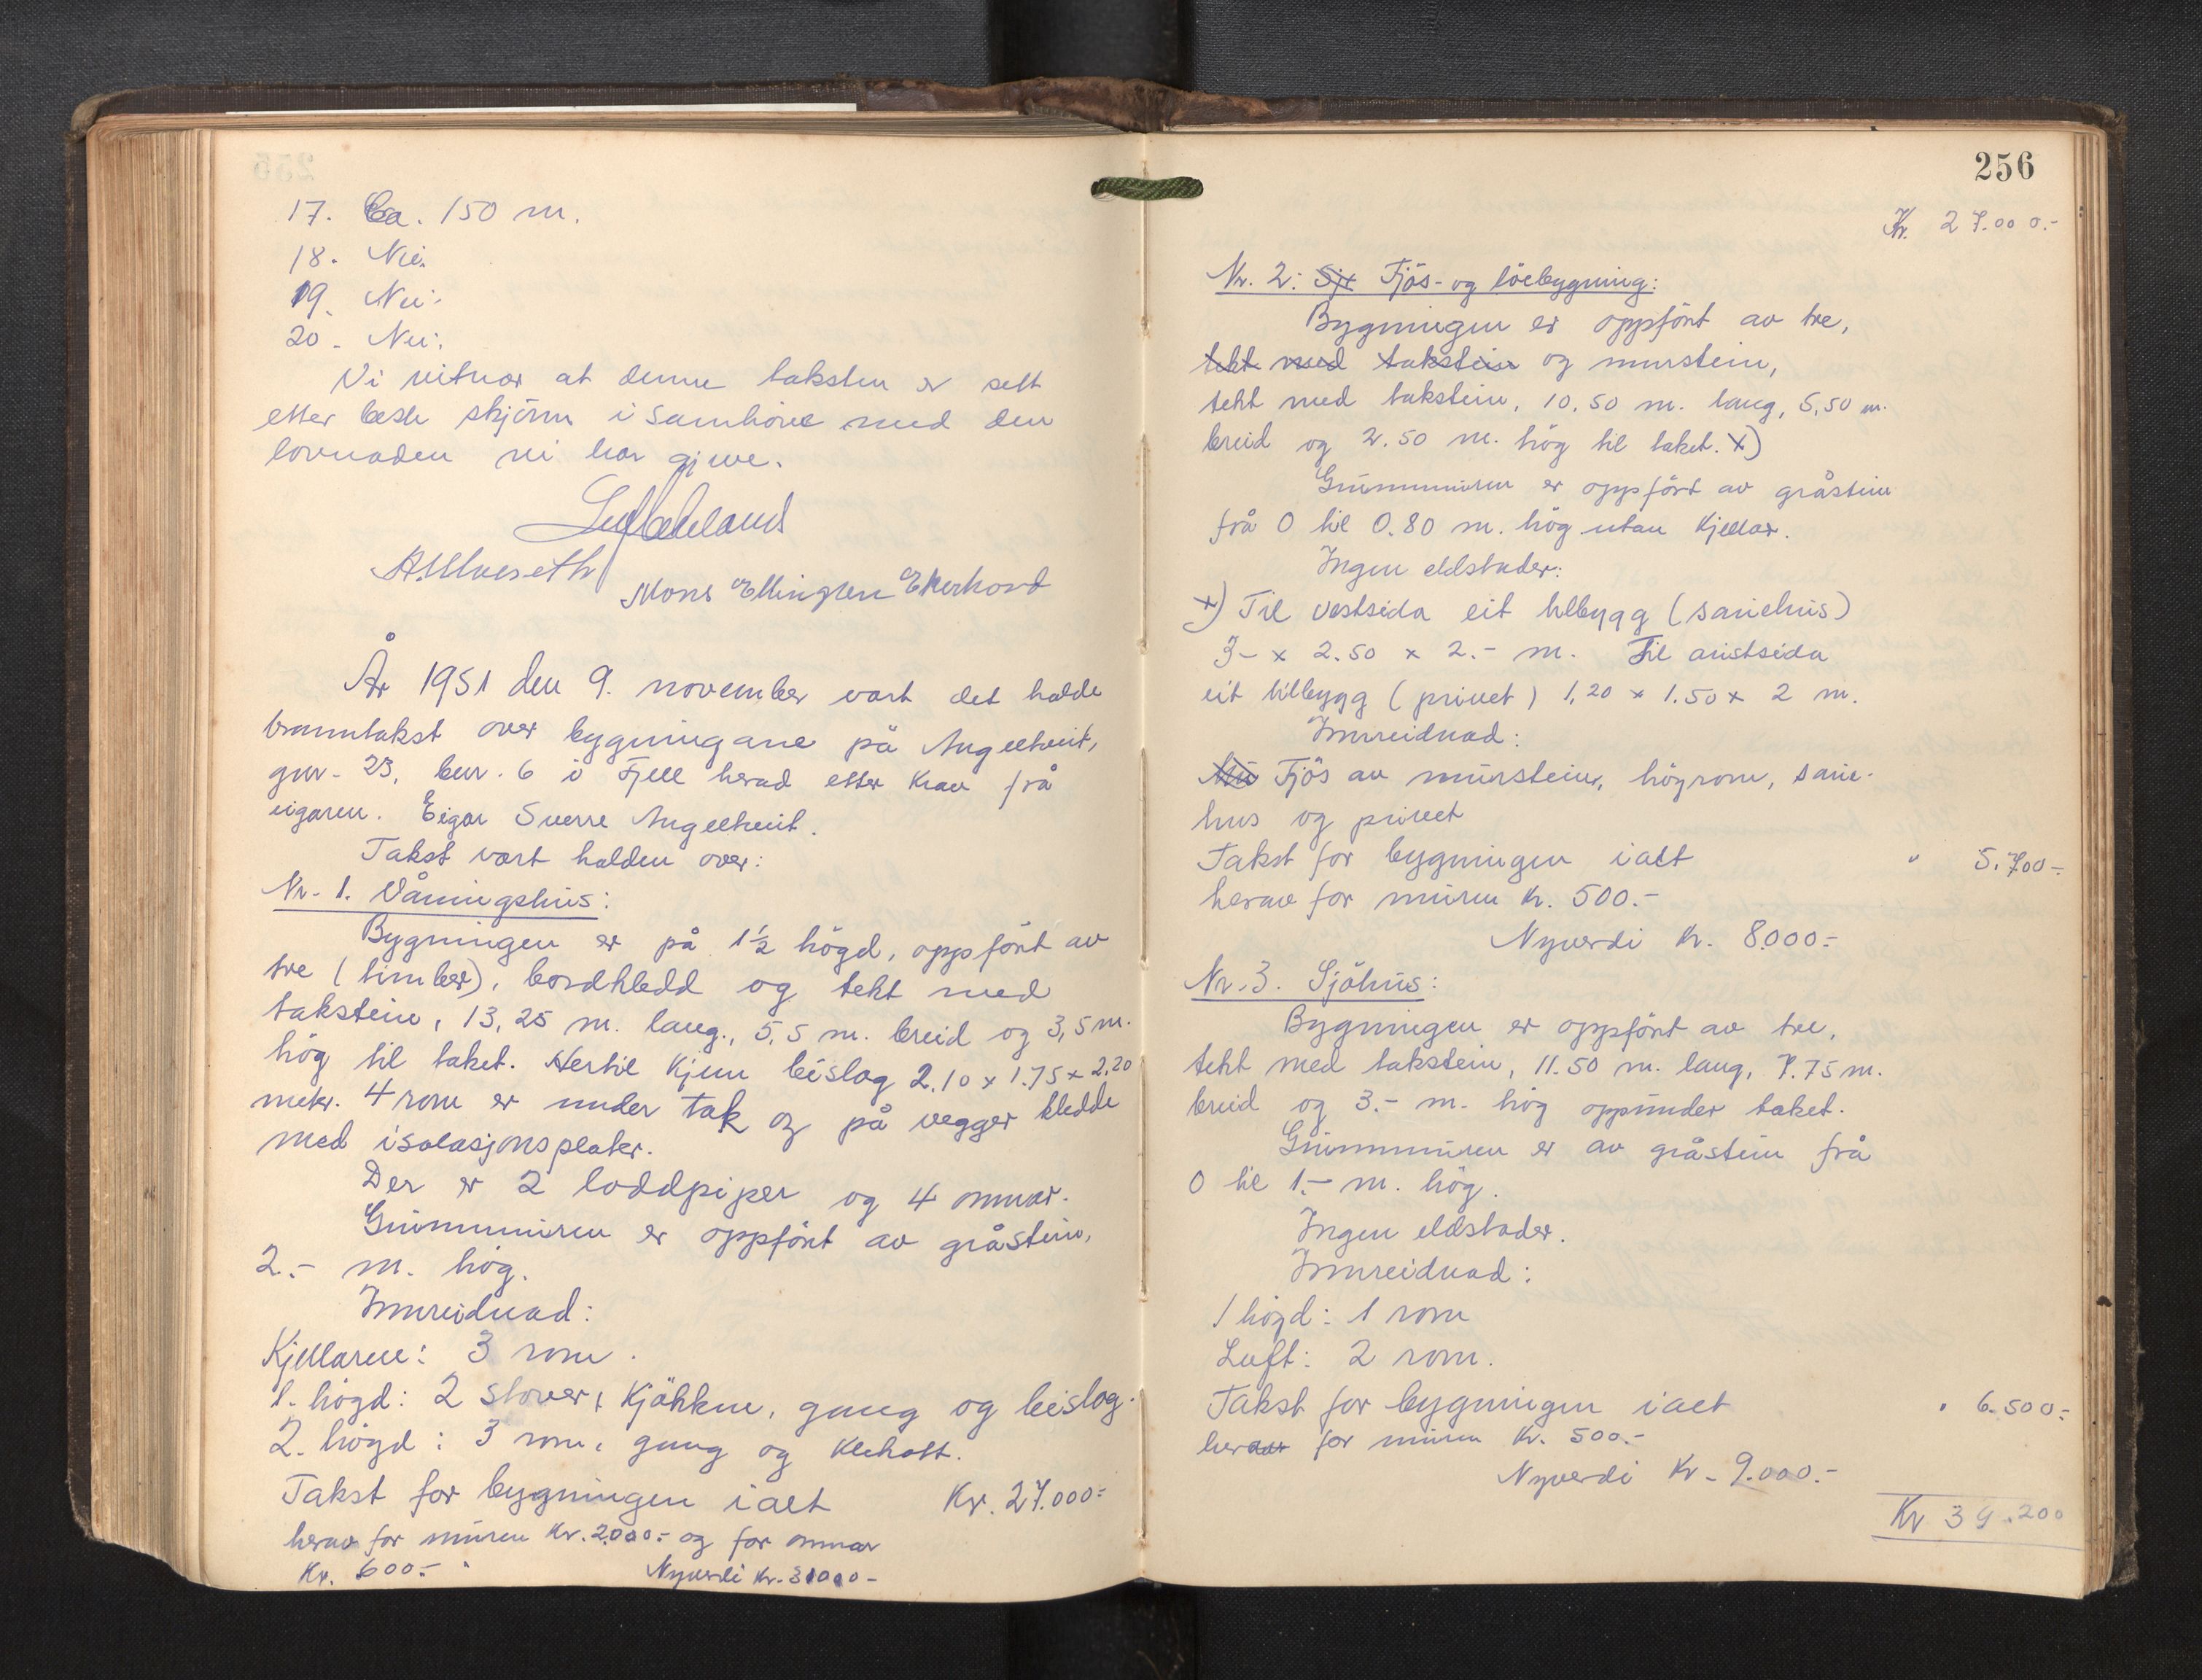 17. Ca. 150 m.
18. Nei.
19. Nei.
20. Nei.
Vi vitnar at denne taksten er sett
etter beste skjönn i samhöve med den
lovnaden vi har gjeve.
A. Ulveseth
Mons Ellingsen Ekerhovd
År 1951 den 9. november vart det halde
branntakst over bygningane på Angeltveit,
gnr. 23, bnr. 6 i Fjell herad etter krav frå
eigaren. Eigar Sverre Angeltveit.
Takst vart halden over:
Nr. 1. Våningshus:
Bygningen er på 1½ högd, oppfört av
tre (timber), bordkledd og tekt med
takstein, 13,25 m. lang., 5,5 m. breid og 3,5 m.
hög til taket. Hertil kjem beislag 2.10 x 1.75 x 2.20
meter. 4 rom er under tak og på vegger kledde
med isolasjonsplater.
Der er 2 loddpiper og 4 omnar.
Grunnmuren er oppfört av gråstein,
2.- m. hög.
Innreidnad:
Kjellaren: 3 rom.
1. högd: 2 stover, kjökken, gang og beislag.
2. högd: 3 rom, gang og klekott.
Takst for bygningen ialt Kr. 27.000.-
herav for muren Kr. 2000.- og for omnar
Kr. 600.- Nyverdi Kr. 31000-
256
Kr. 27.000.-
Nr. 2: Sjx Fjös- og löebygning:
Bygningen er oppfört av tre,
tekt med takstein og murstein,
tekt med takstein, 10.50 m. lang, 5,50 m.
breid og 2.50 m. hög til taket. x)
Grunnmuren er oppfört av gråstein
frå 0 til 0.80 m. hög utan kjellar.
Ingen eldstader.
x) Til vestsida eit tilbygg (sauehus)
3- x 2.50 x 2.- m. Til austsida
eit tilbygg (privet) 1,20 x 1.50 x 2 m.
Innreidnad:
Mu Fjös av murstein, högrom, saue-
hus og privet
Takst for bygningen ialt " 5.700-
herav for muren Kr. 500.-
Nyverdi Kr. 8.000.-
Nr. 3. Sjöhus:
Bygningen er oppfört av tre,
tekt med takstein, 11.50 m. lang, 7.75 m.
breid og 3.- m. hög oppunder taket.
Grunnmuren er av gråstein frå
0 til 1.- m. hög.
Ingen eldstader.
Innreidnad:
1 högd: 1 rom
Loft: 2 rom.
Takst for bygningen ialt " 6.500.-
herav for muren Kr. 500.-
Nyverdi Kr. 9.000.-
Kr 39.200